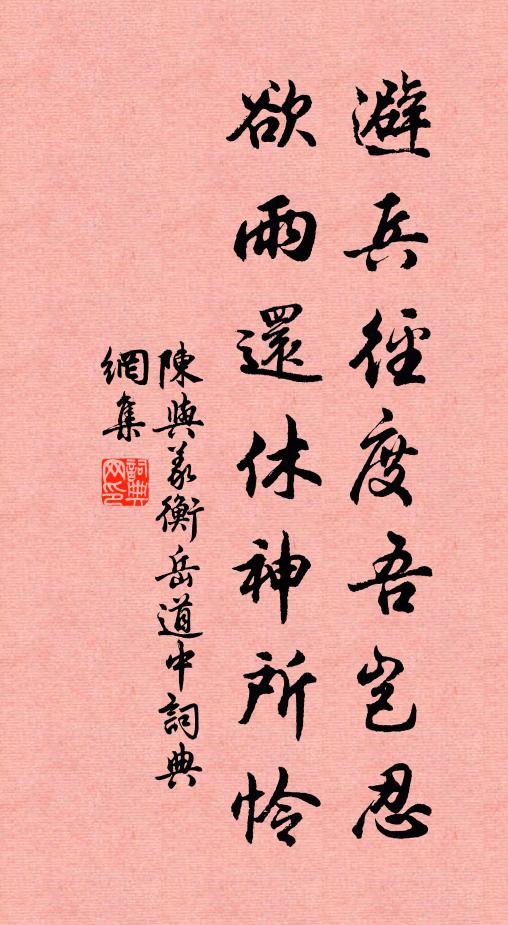 避兵徑度吾豈忍
欲雨還休神所怜
陳與義衡岳道中詞典
網集
詞典網印